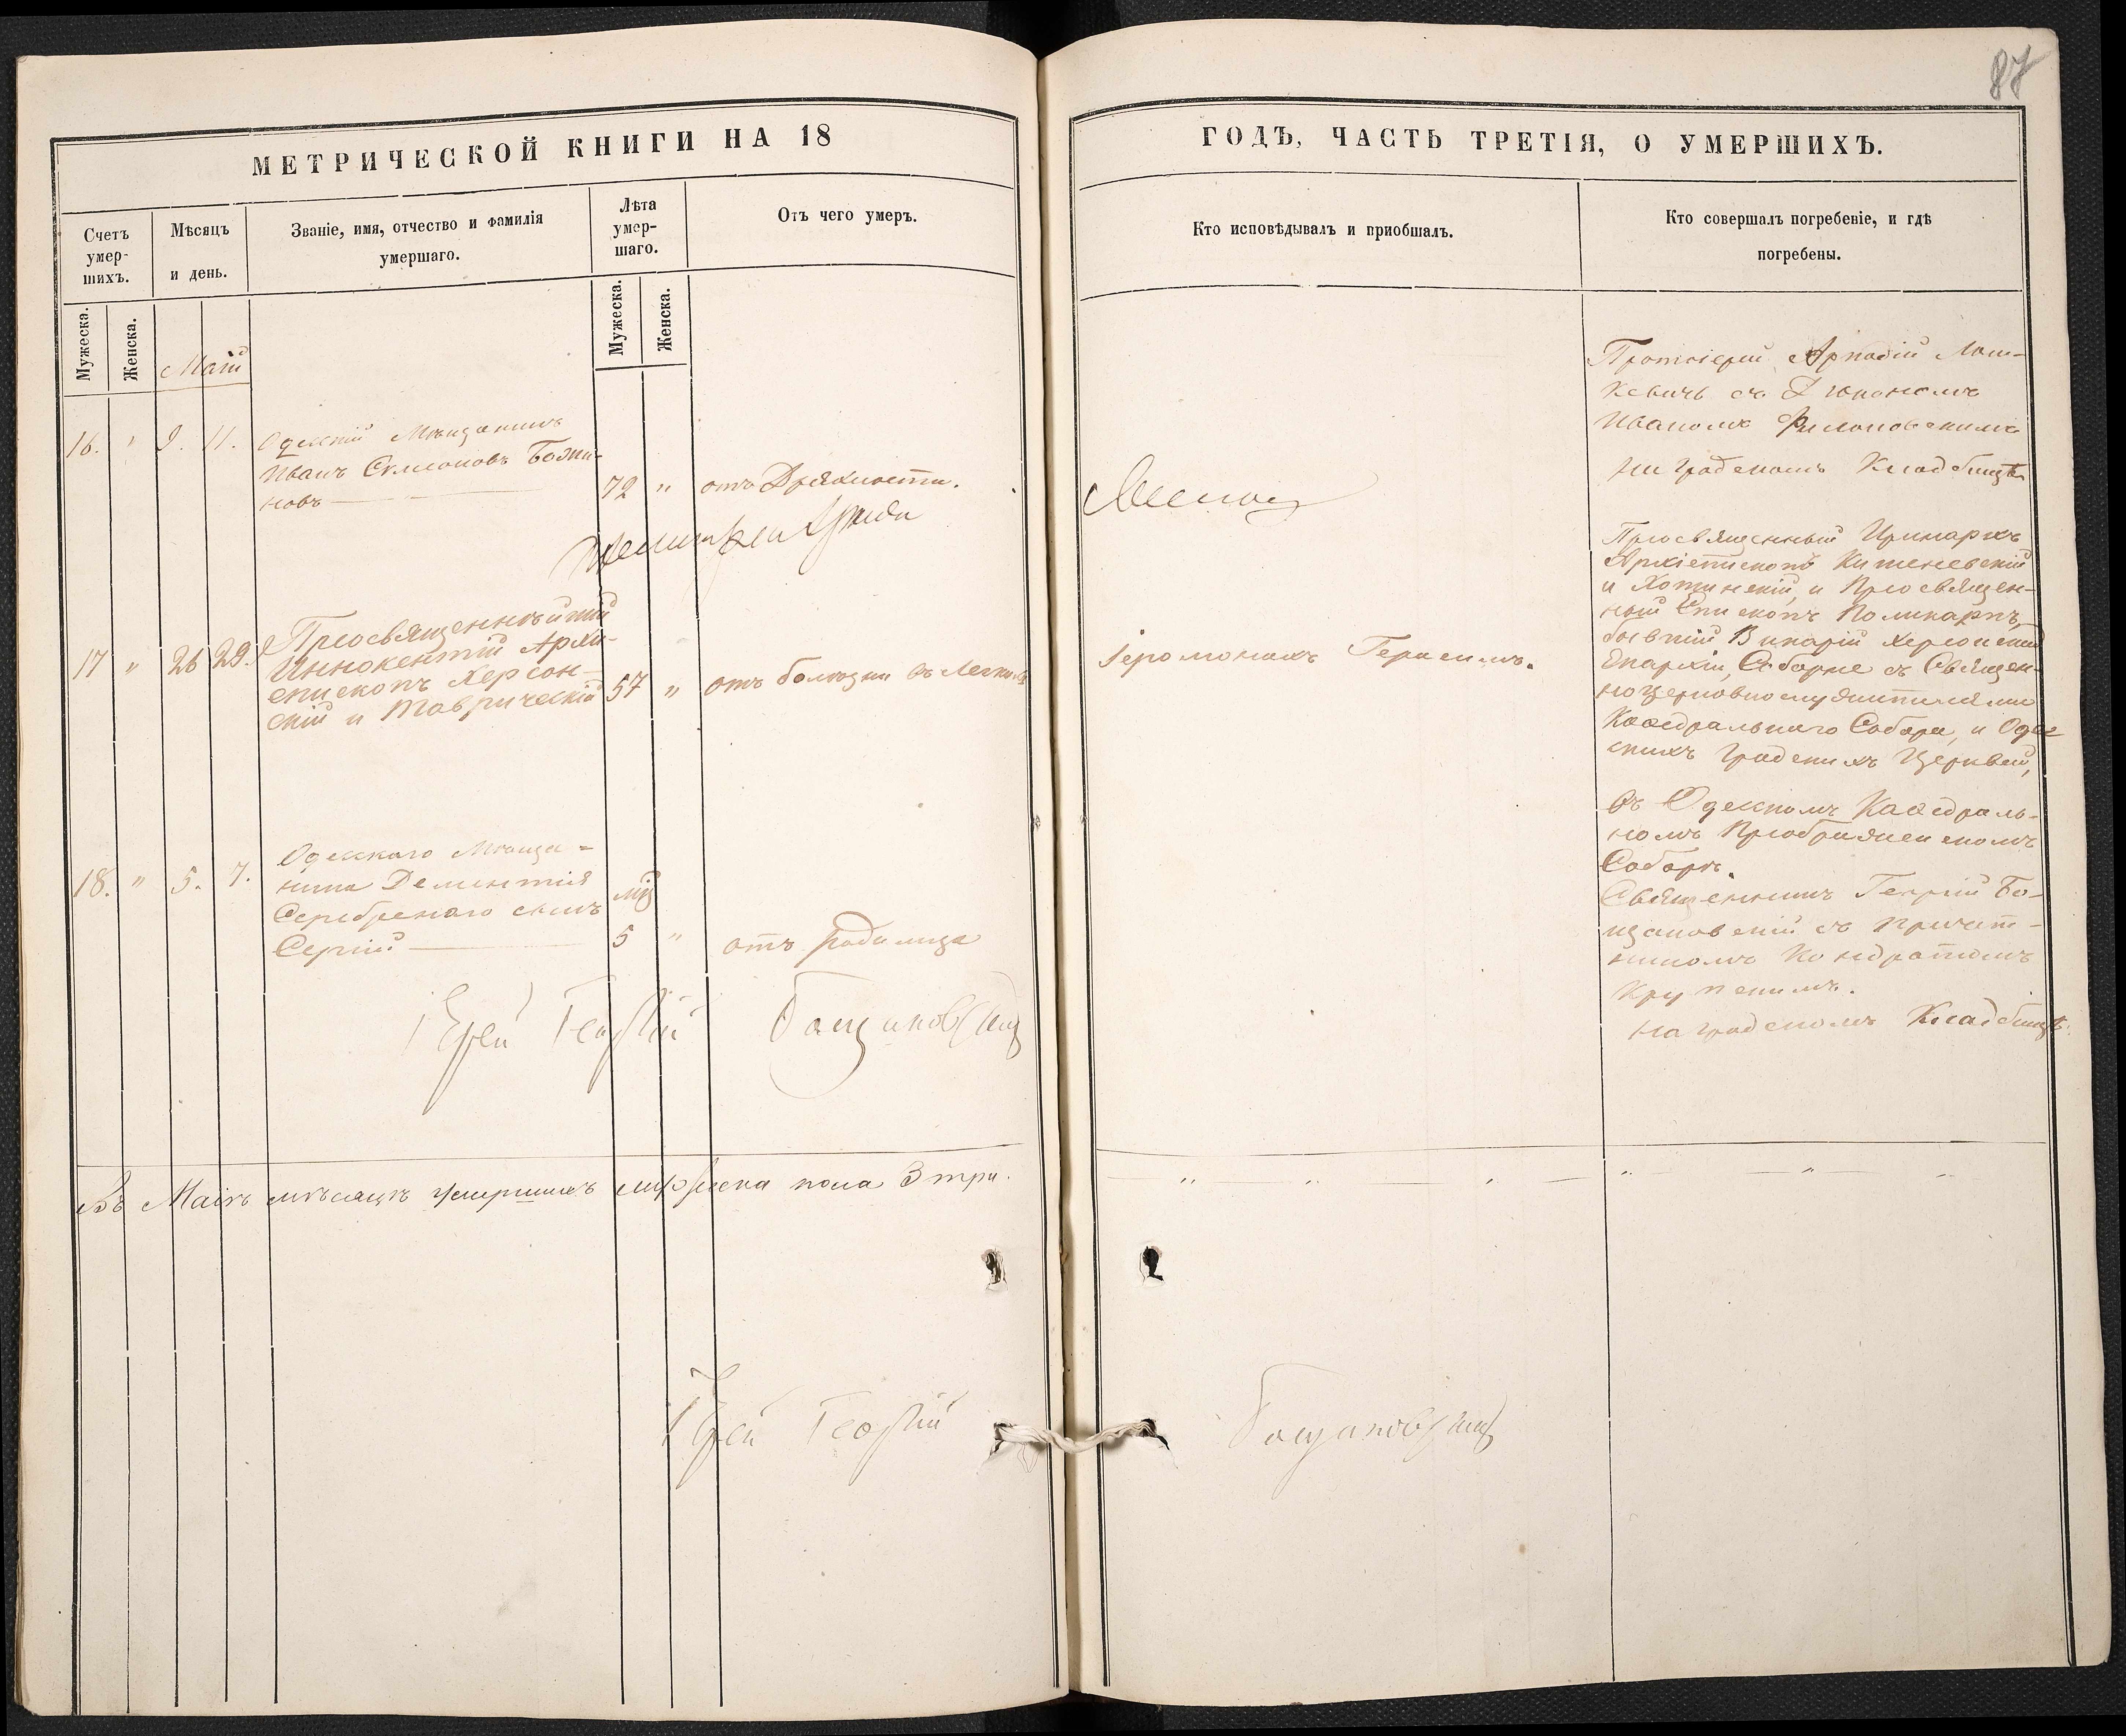 87
МЕТРИЧЕСКОЙ КНИГИ НА 18
ГОДЪ, ЧАСТЬ ТРЕТІЯ, О УМЕРШИХЪ.
Счетъ
умер-
шихъ.
Мѣсяцъ
и день.
Званіе, имя, отчество и фамилія
умершаго.
Лѣта
умер-
шаго.
Отъ чего умеръ.
Кто исповѣдывалъ и пріобщалъ.
Кто совершалъ погребеніе, и гдѣ
погребены.
Мужеска.
Женска.
Мужеска.
Женска.
Маій
16. " 9. 11.
Одесскій Мѣщанинъ
Иванъ Симеоновъ
новъ
72 " отъ Дряхлости.
Протоіерей Аркадій
съ Діакономъ
Иваномъ Филоновскимъ
На градскомъ Кладбищѣ
17 " 26 29.
Преосвященнѣйшій
Иннокентій Архи-
епископъ Херсон-
скій и Таврическій
57 " отъ болѣзни въ Легкихъ
Іеромонахъ Герасимъ.
Преосвященный Иринархъ
Архіепископъ Кишеневскій
и Хотинскій, и Преосвящен-
ный Епископъ Поликарпъ,
бывшій Викарій Херсонской
Епархіи, Соборне съ Священ-
ноцерковнослужителями
Каѳедральнаго Собора, и Одес-
скихъ Градскихъ Церквей,
въ Одесскомъ Каѳедраль-
номъ Преображенскомъ
Соборѣ.
18. " 5. 7.
Одесскаго Мѣща-
нина Дементія
Серебренаго сынъ
Сергій
5 " отъ родимца
Священникъ Георгій Бо-
щановскій съ Причет-
никомъ Кондратомъ
Крупскимъ.
На градскомъ Кладбищѣ.
Іерей Георгій Бощановскій
Въ Маіѣ мѣсяцѣ умершихъ мужеска пола 3 три.
Іерей Георгій Бощановскій